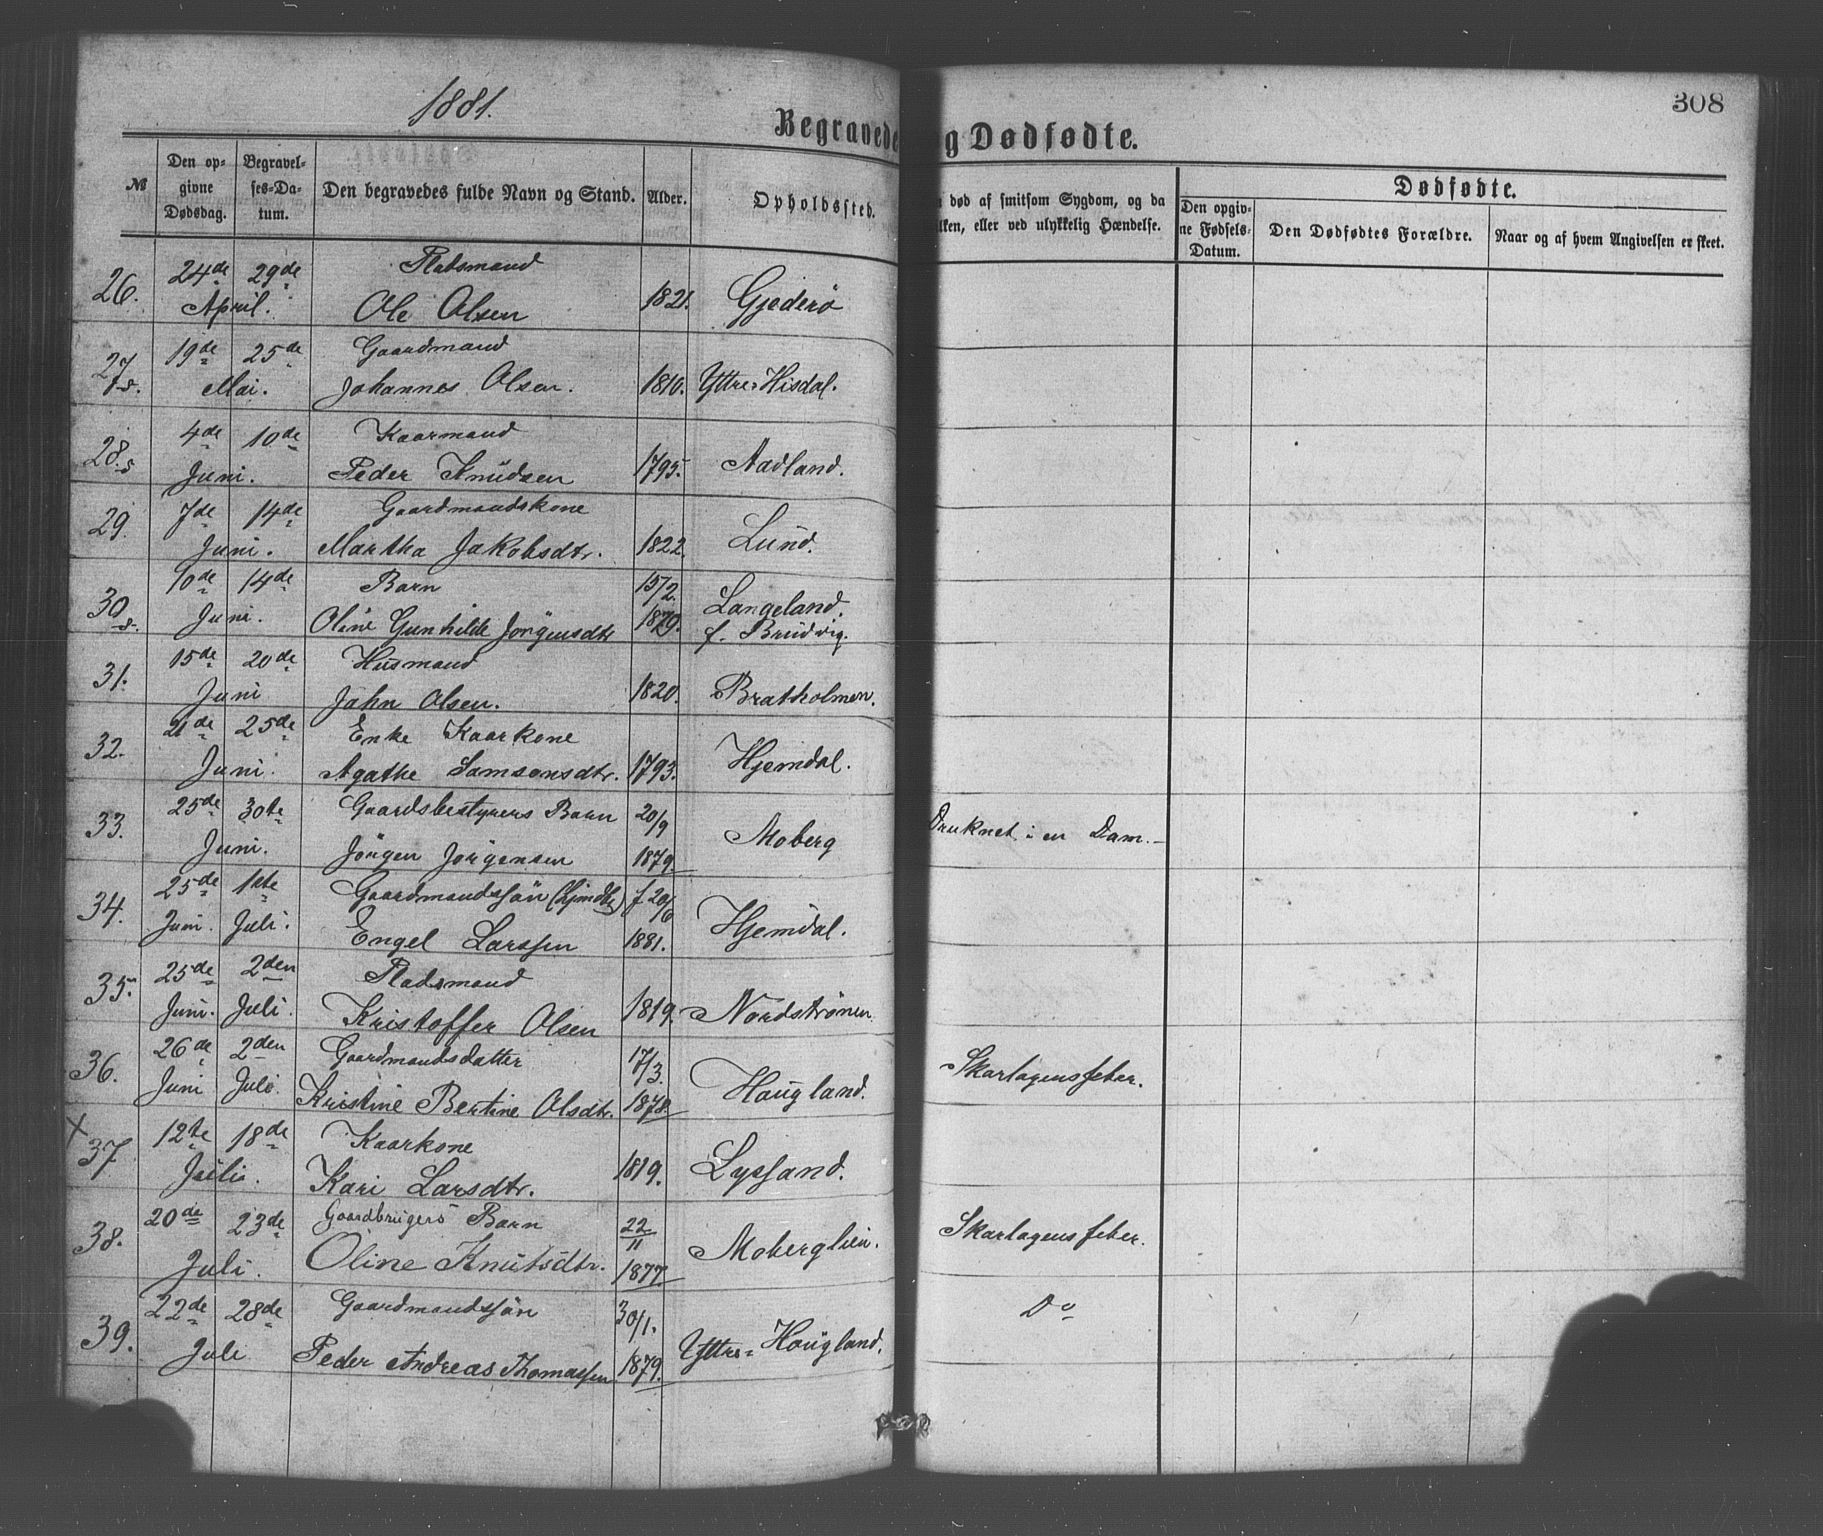 1881.
308
Begravede og Dødfødte.
№
Den op-
givne
Dødsdag.
Begravel-
ses-Da-
tum.
Den begravedes fulde Navn og Stand.
Alder.
Opholdssted.
død af smitsom Sygdom, og da
ilken, eller ved ulykkelig Hændelse.
Dødfødte.
Den opgiv-
ne Fødsels-
Datum.
Den Dødfødtes Forældre.
Naar og af hvem Angivelsen er skeet.
24de 29de Pladsmand
26. April. Ole Olsen 1821. Gjederø
19de 25de Gaardmand
27. Mai. Johannes Olsen. 1810. Yttre-Hisdal.
4de 10de Kaarmand
28. Juni. Peder Knudsen 1795. Aadland.
7de 14de Gaardmandskone
29. Juni. Martha Jakobsdtr. 1822. Lund.
10de 14de Barn 15/2. Langeland.
30 Juni. Oline Gunhilde Jörgensdtr 1879. f. Brudvig.
15de 20de Husmand
31. Juni John Olsen. 1820. Bratholmen.
21de 25de Enke Kaarkone
32. Juni. Agathe Samsonsdtr. 1793. Hjemdal.
25de 30te Gaardsbestyrers Barn 20/9
33. Juni. Jörgen Jörgensen 1879. Moberg Druknet i en Dam.
25de 1ste Gaardmandssön (hjmdbt) f 20/6
34. Juni. Juli. Engel Larssen 1881. Hjemdal.
25de 2den Pladsmand
35. Juni. Juli. Kristoffer Olsen 1819. Nordstrønen
26de 2den Gaardmandsdatter 17/3.
36. Juni Juli. Kristine Bertine Olsdtr. 1878. Haugland. Skarlagensfeber.
X 12te 18de Kaarkone
37 Juli. Kari Larsdtr. 1819. Lyssand.
20de 23de Gaardbrugers Barn 22/11
38. Juli. Oline Knutsdtr. 1877. Moberglien. Skarlagensfeber.
22de 28de Gaardmandssön 30/1.
39. Juli Peder Andreas Thomassen 1879. Yttre-Haugland. Do